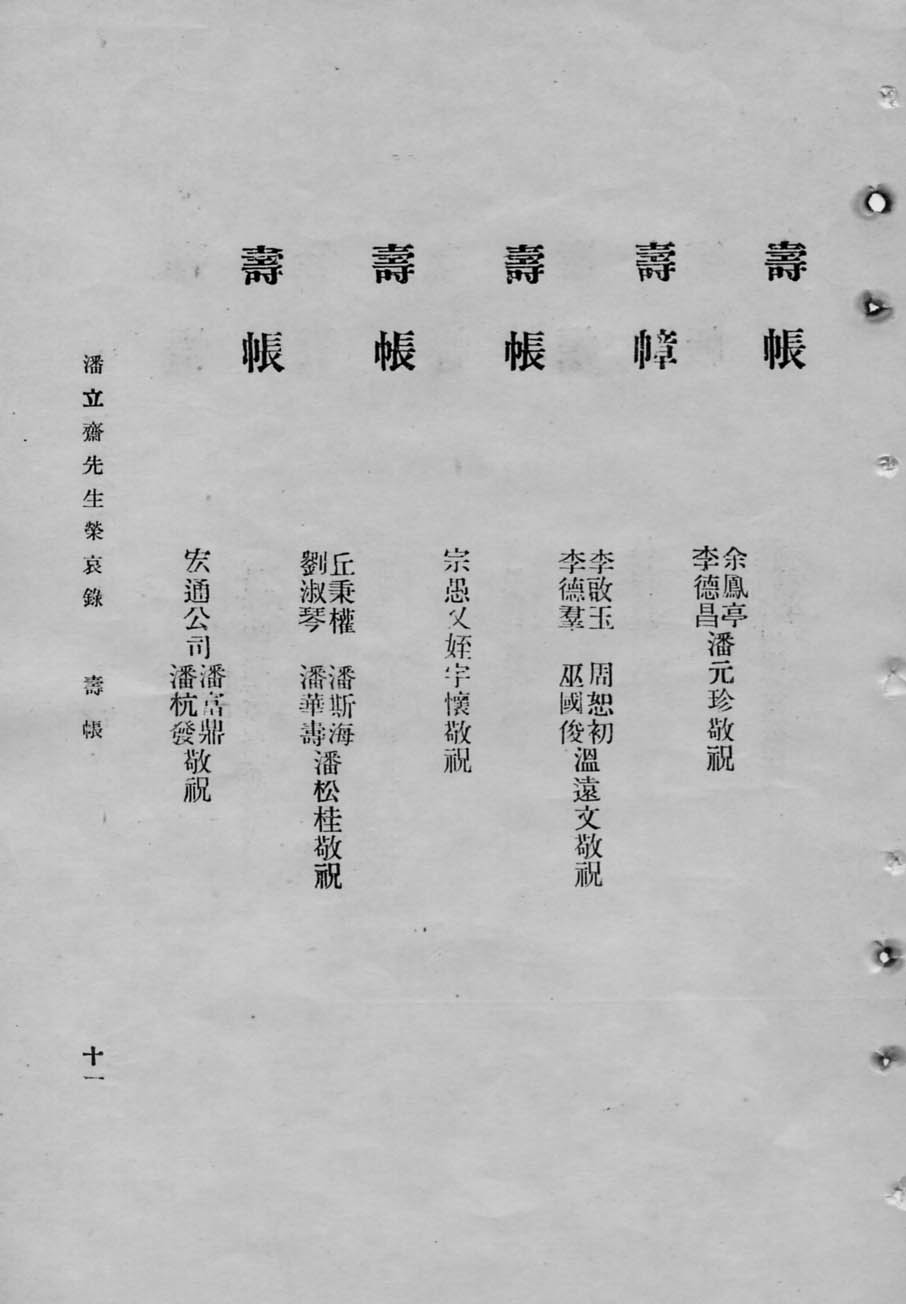 壽帳
余鳳亭
李德昌
潘元珍敬祝
壽幛
李敢玉 周恕初
李德羣 巫國俊
溫遠文敬祝
壽帳
宗愚父姪宇懷敬祝
壽帳
丘秉權 潘斯海
劉淑琴 潘華壽
潘松桂敬祝
壽帳
宏通公司
潘富鼎
潘杭發
敬祝
潘立齋先生榮哀錄 壽帳 十一